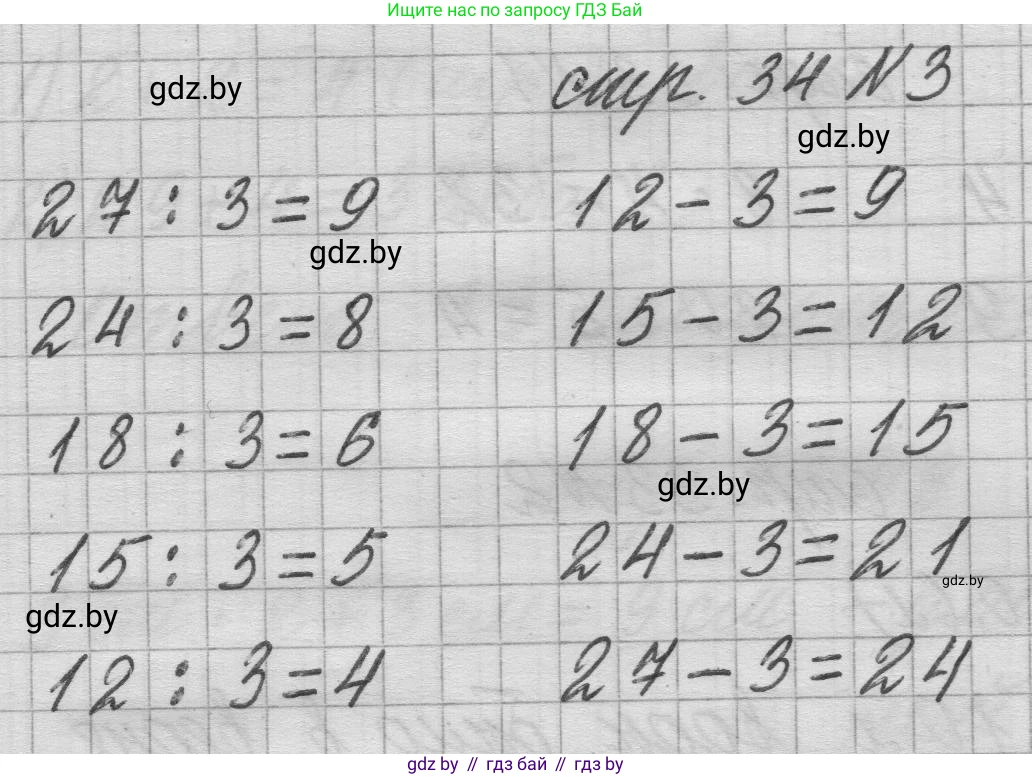 Ищите нас по запросу ГДЗ Бай
gdz.by
стр. 34 N 3
gdz.by
27 : 3 = 9
12 - 3 = 9
gdz.by
24 : 3 = 8
15 - 3 = 12
18 : 3 = 6
18 - 3 = 15
gdz.by
15 : 3 = 5
24 - 3 = 21
gdz.by
gdz.by
12 : 3 = 4
27 - 3 = 24
gdz.by // гдз бай // гдз by